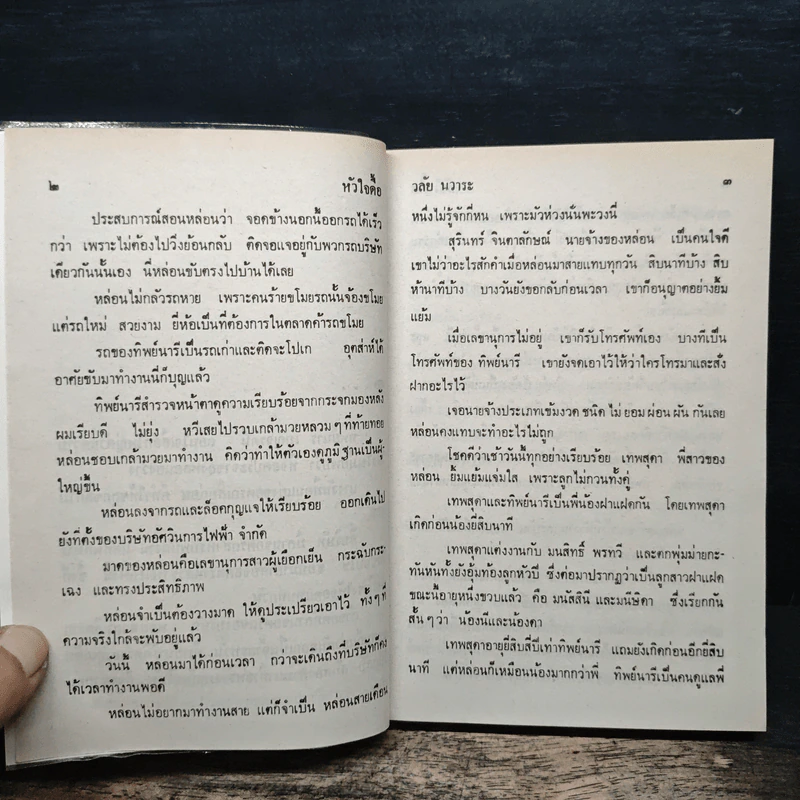 ๒ หัวใจดื้อ
ประสบการณ์สอนหล่อนว่า จอดข้างนอกนี้ออกรถได้เร็ว
กว่า เพราะไม่ต้องไปวิ่งย้อนกลับ ติดจอแจอยู่กับพวกรถบริษัท
เดียวกันนั้นเอง นี่หล่อนขับตรงไปบ้านได้เลย
หล่อนไม่กลัวรถหาย เพราะคนร้ายขโมยรถนั้นจ้องขโมย
แต่รถใหม่ สวยงาม ยี่ห้อเป็นที่ต้องการในตลาดค้ารถขโมย
รถของทิพย์นารีเป็นรถเก่าและติดจะโปเก อุตส่าห์ได้
อาศัยขับมาทำงานนี่ก็บุญแล้ว
ทิพย์นารีสำรวจหน้าตาดูความเรียบร้อยจากกระจกมองหลัง
ผมเรียบดี ไม่ยุ่ง หวีเสยไปรวบเกล้ามวยหลวมๆที่ท้ายทอย
หล่อนชอบเกล้ามวยมาทำงาน คิดว่าทำให้ตัวเองดูภูมิฐานเป็นผู้-
ใหญ่ขึ้น
หล่อนลงจากรถและล็อคกุญแจให้เรียบร้อย ออกเดินไป
ยังที่ตั้งของบริษัทอัศวินการไฟฟ้า จำกัด
มาดของหล่อนคือเลขานุการสาวผู้เยือกเย็น กระฉับกระ-
เฉง และทรงประสิทธิภาพ
หล่อนจำเป็นต้องวางมาด ให้ดูประเปรียวเอาไว้ ทั้งๆที่
ความจริงใกล้จะพับอยู่แล้ว
วันนี้ หล่อนมาได้ก่อนเวลา กว่าจะเดินถึงที่บริษัทก็คง
ได้เวลาทำงานพอดี
หล่อนไม่อยากมาทำงานสาย แต่ก็จำเป็น หล่อนสายเดือน
วลัย นวาระ ๓
หนึ่งไม่รู้จักกี่หน เพราะมัวห่วงนั่นพะวงนี่
สุรินทร์ จินดาลักษณ์ นายจ้างของหล่อน เป็นคนใจดี
เขาไม่ว่าอะไรสักคำเมื่อหล่อนมาสายแทบทุกวัน สิบนาทีบ้าง สิบ
ห้านาทีบ้าง บางวันยังขอกลับก่อนเวลา เขาก็อนุญาตอย่างยิ้ม
แย้ม
เมื่อเลขานุการไม่อยู่ เขาก็รับโทรศัพท์เอง บางทีเป็น
โทรศัพท์ของ ทิพย์นารี เขายังจดเอาไว้ให้ว่าใครโทรมาและสั่ง
ฝากอะไรไว้
เจอนายจ้างประเภทเข้มงวด ชนิด ไม่ ยอม ผ่อน ผัน กันเลย
หล่อนคงแทบจะทำอะไรไม่ถูก
โชคดีว่าเช้าวันนี้ทุกอย่างเรียบร้อย เทพสุดา พี่สาวของ
หล่อน ยิ้มแย้มแจ่มใส เพราะลูกไม่กวนทั้งคู่
เทพสุดาและทิพย์นารีเป็นพี่น้องฝาแฝดกัน โดยเทพสุดา
เกิดก่อนน้องยี่สิบนาที
เทพสุดาแต่งงานกับ มนสิทธิ์ พรทวี และตกพุ่มม่ายกะ-
ทันหันทั้งยังอุ้มท้องลูกหัวปี ซึ่งต่อมาปรากฏว่าเป็นลูกสาวฝาแฝด
ขณะนี้อายุหนึ่งขวบแล้ว คือ มนัสสินี และมนีษิดา ซึ่งเรียกกัน
สั้นๆว่า น้องนีและน้องดา
เทพสุดาอายุยี่สิบสี่ปีเท่าทิพย์นารี แถมยังเกิดก่อนอีกยี่สิบ
นาที แต่หล่อนก็เหมือนน้องมากกว่าพี่ ทิพย์นารีเป็นคนดูแลพี่